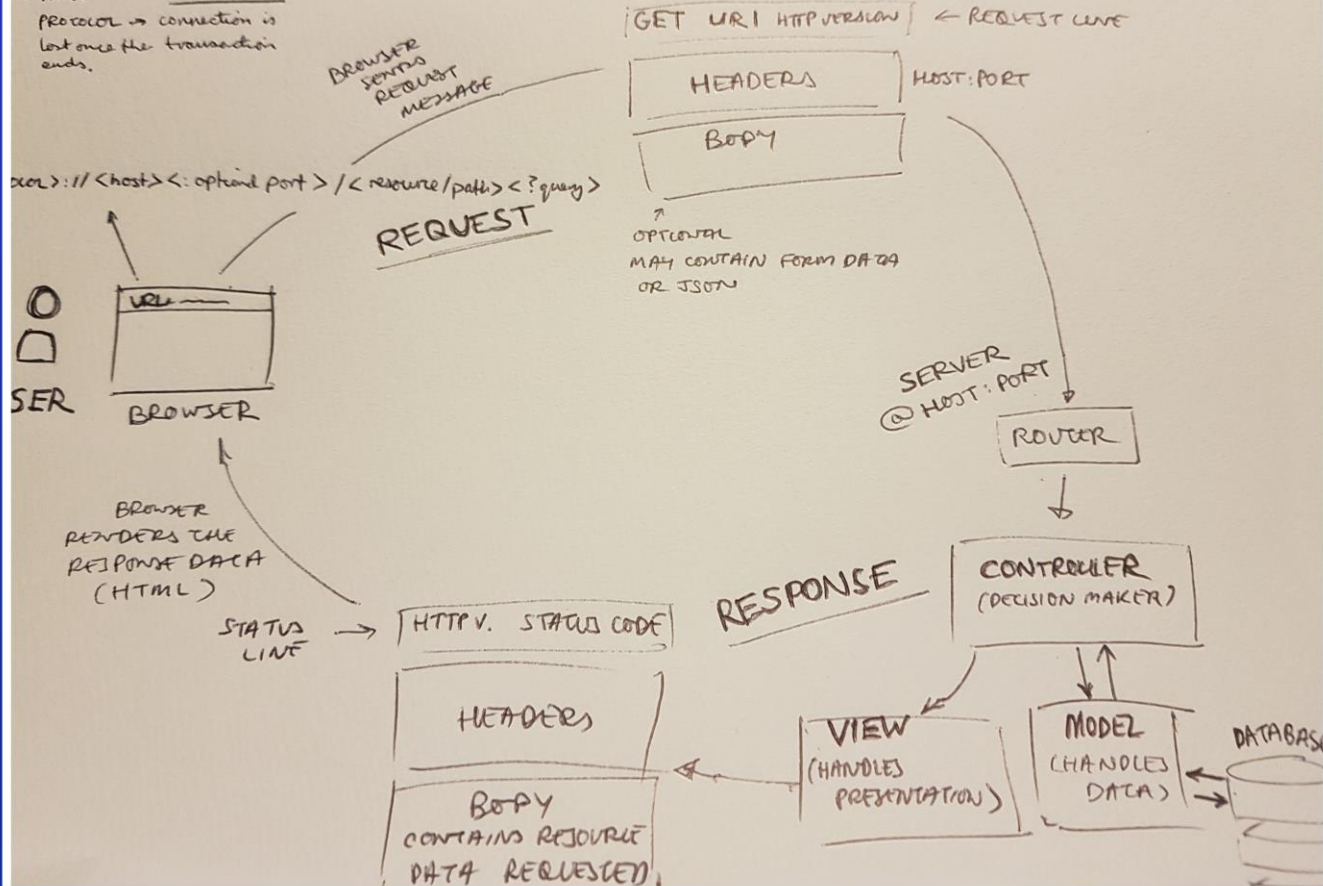 PROTOCOL → connection is
lost once the transaction
ends.
BROWSER
SENDS
REQUEST
MESSAGE
GET URI HTTP VERSION
← REQUEST LINE
HEADERS
HOST:PORT
BODY
OPTIONAL
MAY CONTAIN FORM DATA
OR JSON
ocol>://<host><:optional port>/<resource/path><?query>
REQUEST
URL
SER
BROWSER
SERVER
@HOST:PORT
ROUTER
CONTROLLER
(DECISION MAKER)
VIEW
(HANDLES
PRESENTATION)
MODEL
(HANDLES
DATA)
DATABASE
RESPONSE
STATUS
LINE →
HTTP V. STATUS CODE
HEADERS
BODY
CONTAINS RESOURCE
DATA REQUESTED
BROWSER
RENDERS THE
RESPONSE DATA
(HTML)